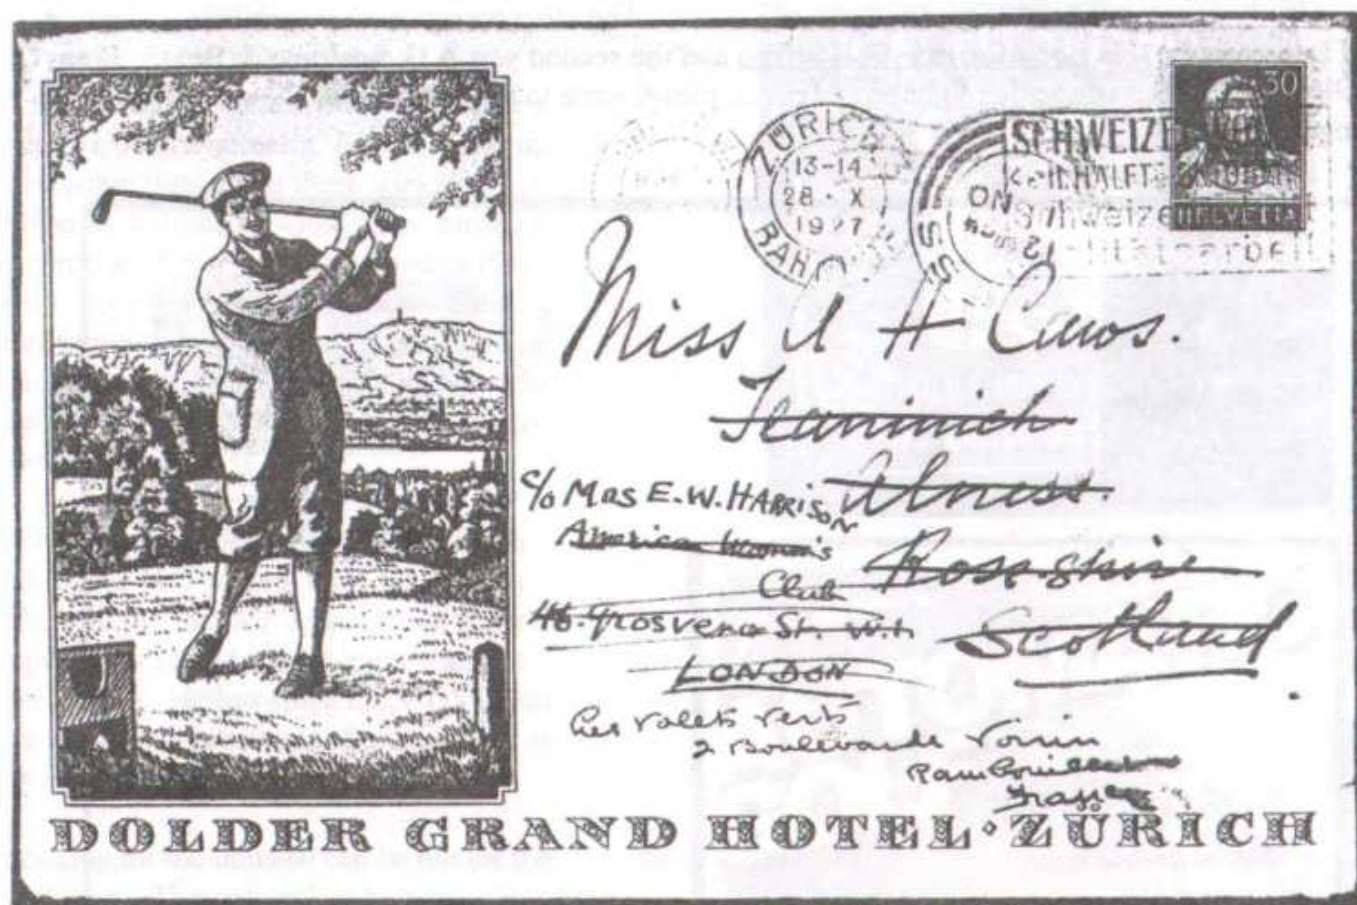 ZÜRICH
13-14
28 X
1927
BAH
30
HELVETIA
SCHWEIZE
Schweize
Miss A H
Alness.
Ross-shire
Scotland
c/o Mrs E.W. HARRISON
American Women's
Club
46. Grosvenor St. W.1
LONDON
Les Volets Verts
2 Boulevarde Voirin
Rambouillet
DOLDER GRAND HOTEL · ZÜRICH